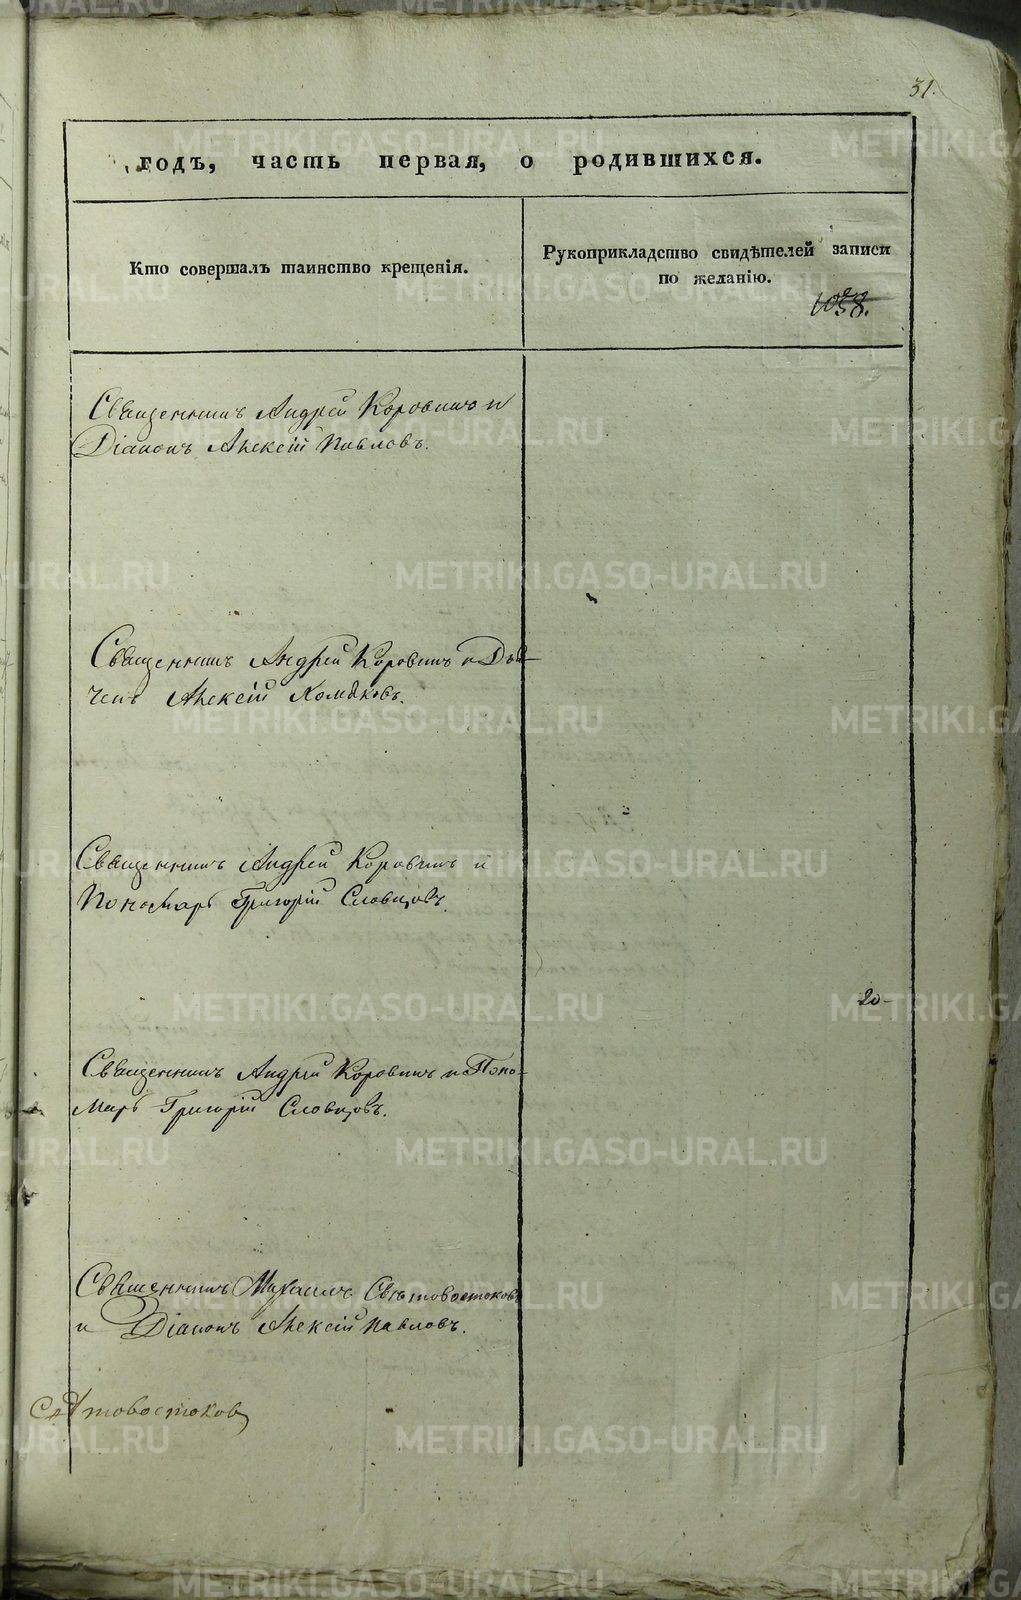 31.
годъ, часть первая, о родившихся.
Кто совершалъ таинство крещенія.
Рукоприкладство свидѣтелей записи
по желанію.
Священникъ Андрей Коровинъ и
Діаконъ Алексій Павловъ.
Священникъ Андрей Коровинъ и Дья-
чекъ Алексій Хомяковъ.
Священникъ Андрей Коровинъ и
Пономарь Григорій Словцовъ.
20-
Священникъ Андрей Коровинъ и Поно-
марь Григорій Словцовъ.
Священникъ Михаилъ Святовостоковъ
и Діаконъ Алексій Павловъ.
Святовостоковъ
METRIKI.GASO-URAL.RU